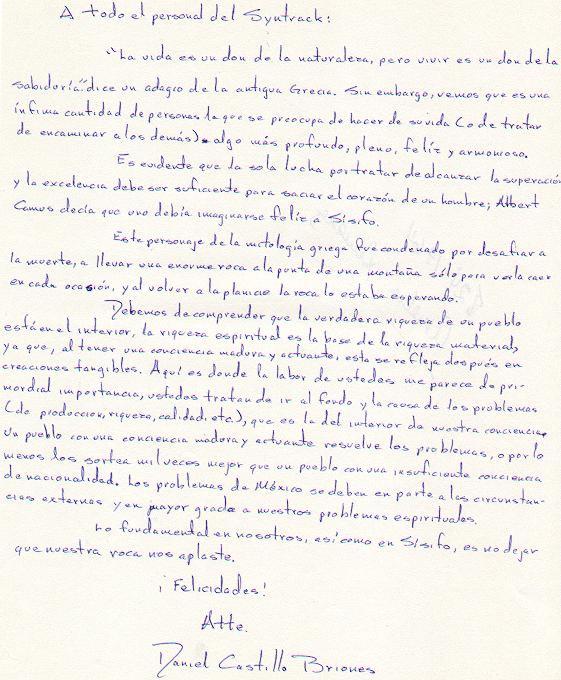 A todo el personal del Syntrack:
"La vida es un don de la naturaleza, pero vivir es un don de la
sabiduría" dice un adagio de la antigua Grecia. Sin embargo, vemos que es una
ínfima cantidad de personas la que se preocupa de hacer de su vida (o de tratar
de encaminar a los demás) algo más profundo, pleno, feliz y armonioso.
Es evidente que la sola lucha por tratar de alcanzar la superación
y la excelencia debe ser suficiente para saciar el corazón de un hombre; Albert
Camus decía que uno debía imaginarse feliz a Sísifo.
Este personaje de la mitología griega fue condenado por desafiar a
la muerte, a llevar una enorme roca a la punta de una montaña sólo para verla caer
en cada ocasión, y al volver a la planicie la roca lo estaba esperando.
Debemos de comprender que la verdadera riqueza de un pueblo
está en el interior, la riqueza espiritual es la base de la riqueza material,
ya que, al tener una conciencia madura y actuante, esta se refleja después en
creaciones tangibles. Aquí es donde la labor de ustedes me parece de pri-
mordial importancia, ustedes tratan de ir al fondo y la causa de los problemas
(de produccion, riqueza, calidad, etc.), que es la del interior de nuestra conciencia.
Un pueblo con una conciencia madura y actuante resuelve los problemas, o por lo
menos los sortea mil veces mejor que un pueblo con una insuficiente conciencia
de nacionalidad. Los problemas de México se deben en parte a las circunstan-
cias externas y en mayor grado a nuestros problemas espirituales.
Lo fundamental en nosotros, así como en Sísifo, es no dejar
que nuestra roca nos aplaste.
¡Felicidades!
Atte.
Daniel Castillo Briones